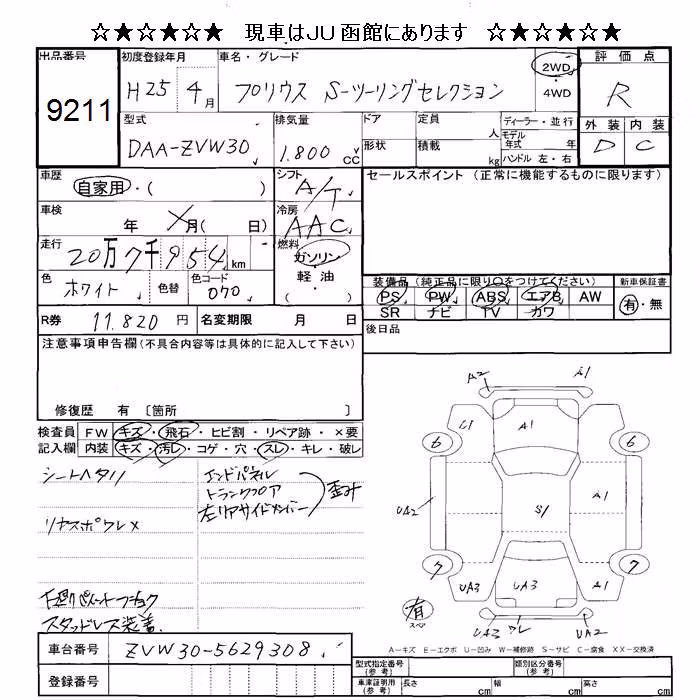 ☆★☆★☆★ 現車はJU函館にあります ☆★☆★☆★
出品番号 初度登録年月 車名・グレード 評価点
9211 H25 4月 プリウス S-ツーリングセレクション 2WD R
・
4WD
型式 排気量 ドア 定員 人 ディーラー・並行 外装 内装
DAA-ZVW30 1.800 CC 形状 積載 kg モデル年式 年 D C
ハンドル 左・右
車歴 シフト セールスポイント (正常に機能するものに限ります)
自家用・( ) A/T
車検 年 月( 日) 冷房
AAC
走行 20万7千954km 燃料
ガソリン
色 ホワイト 色替 色コード 070 軽油
( )
装備品(純正品に限り○をつけてください) 新車保証書
PS PW ABS エアB AW 有・無
SR ナビ TV カワ
R券 11.820円 名変期限 月 日 後日品
注意事項申告欄(不具合内容等は具体的に記入して下さい)
修復歴 有 〔箇所 〕
検査員 FW キズ・飛石・ヒビ割・リペア跡・×要
記入欄 内装 キズ・汚レ・コゲ・穴・スレ・キレ・破レ
シートヘタリ
エンドパネル
トランクフロア
左リアサイドメンバー
歪み
リヤスポワレ×
スタッドレス装着
A2 A1
C1 A1
6 6
UA2 S1 A1
7 7
UA3 UA3 A1
有
スペア
UA3 ワレ UA2
A-キズ E-エクボ U-凹み W-補修跡 S-サビ C-腐食 XX-交換済
車台番号 ZVW30-5629308
登録番号
型式指定番号(参考) 類別区分番号(参考)
車庫証明用(参考) 長さ cm 幅 cm 高さ cm